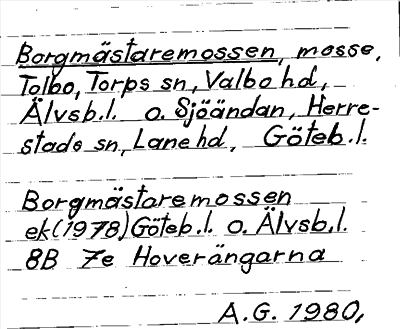 Borgmästaremossen, mosse,
Tolbo, Torps sn, Valbo hd,
Älvsb.l. o. Sjöändan, Herre-
stads sn, Lane hd, Göteb.l.
Borgmästaremossen
ek(1978) Göteb.l. o. Älvsb.l.
8B 7e Hoverängarna
A.G. 1980,